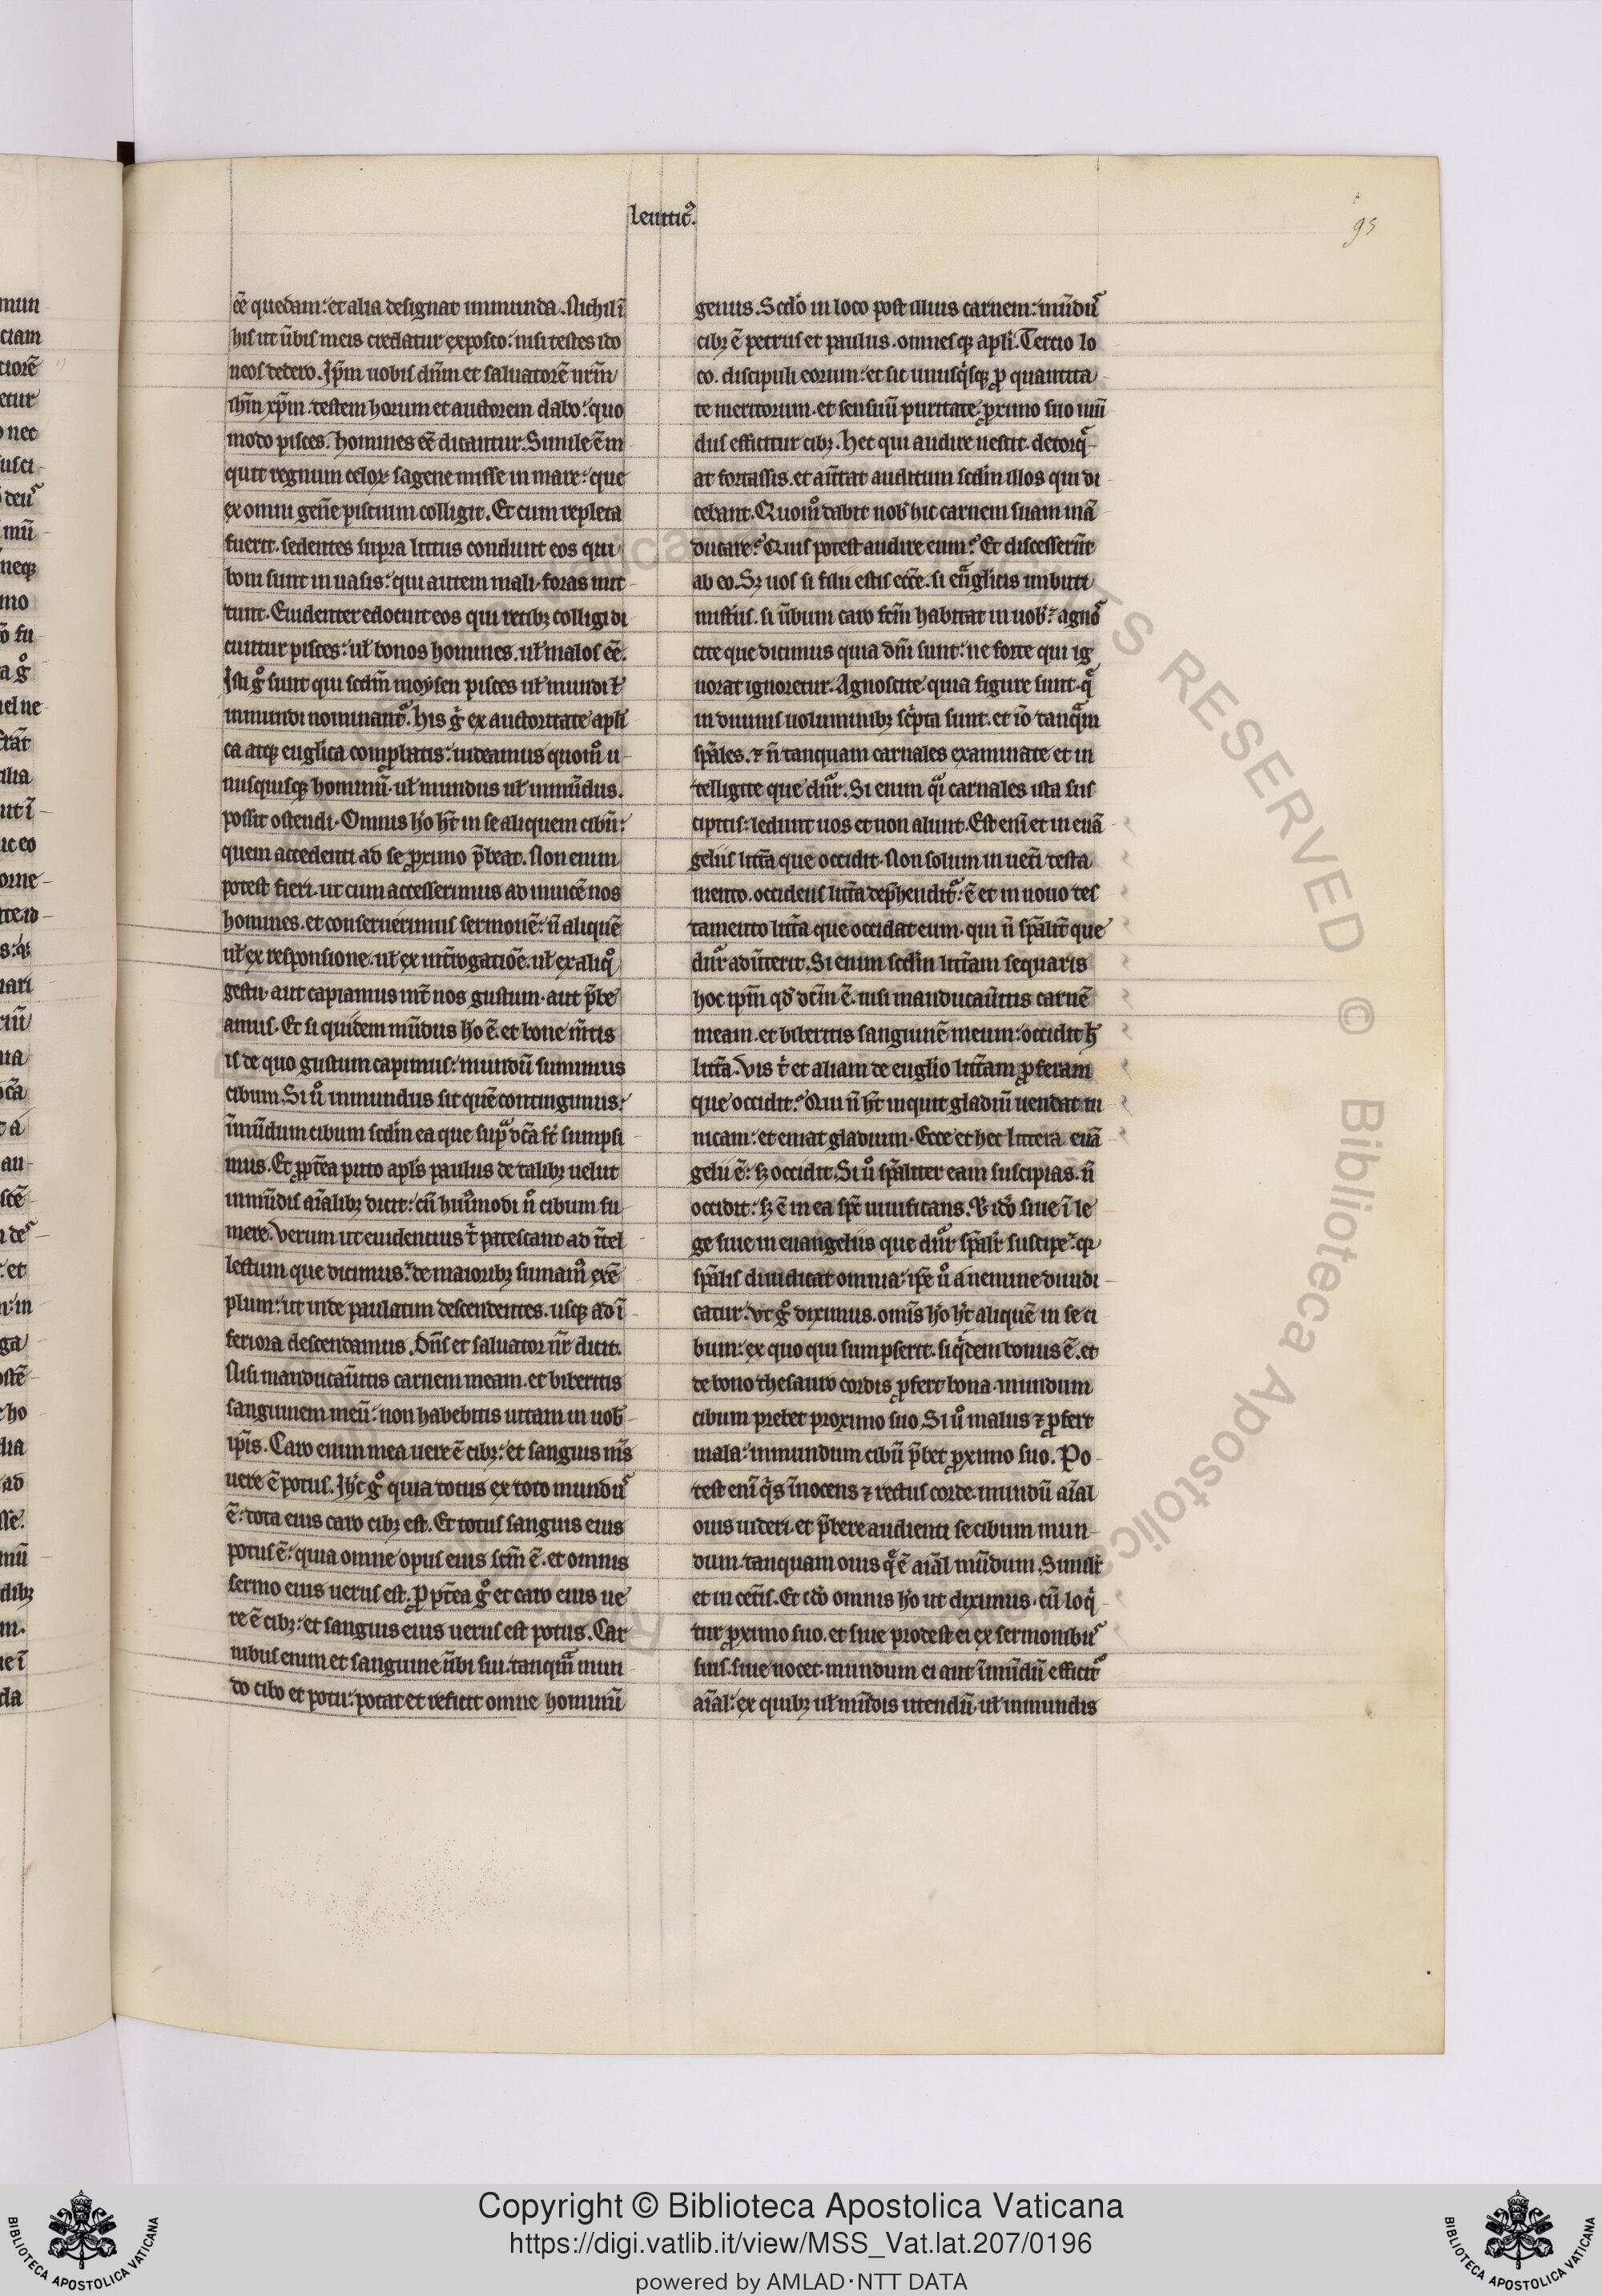 leuitic᷒.
95
ēē quedam: et alia designat inmunda. Nichil ī
his ut ūbis meis credatur exposco: nisi testes ido
neos dedero. Ip̄m uobis dn̄m et saluatorē nr̄m
ihm̄ xp̄m. testem horum et auctorem dabo: quo
modo pisces. homines eē dicantur. Simile ē in
quit regnum celoꝝ sagene misse in mare: que
ex omni gen̄e piscium colligit. Et cum repleta
fuerit. sedentes supra littus condunt eos qui
boni sunt in uasis: qui autem mali. foras mit
tunt. Euidenter edocuit eos qui retibꝫ colligi di
cuntur pisces: ul̄ bonos homines. ul̄ malos eē.
Isti gͦ sunt qui scdm̄ moysen pisces ul̄ mundi ł
inmundi nominant᷑. His gͥ ex auctoritate apl̄i
ca atqꝫ euglica comp̱batis: uideamus quomͦ u
nusquisqꝫ hominū. ul̄ mundus ul̄ inmūdus.
possit ostendi. Omnis hō hт̄ in se aliquem cibū:
quem accedenti ad se ꝓximo p̄beat. Non enim
potest fieri. ut cum accesserimus ad inuicē nos
homines. et conseruerimus sermonē: n̄ aliquē
ul̄ ex responsione. ul̄ ex int̄rogatiōe. ul̄ ex aliqͦ
gestu. aut capiamus int̄ nos gustum. aut p̄be
amus. Et si quidem mūdus hō ē. et bone m̄tis
is de quo gustum capimus: mundū sumimus
cibum. Si uͦ inmundus sit quē contingimus:
īmūdum cibum scdm̄ ea que supᷓ dc̄a sт̄ sumpsi
mus. Et ꝓpt̄ea puto apl̄s paulus de talibꝫ uelut
inmūdis aīalibꝫ dicit: cū huiͦmodi n̄ cibum su
mere. Verum ut euidentius ł patescant ad ītel
lectum que dicimus: de maioribꝫ sumam᷒ exē
plum: ut inde paulatim descendentes. usqꝫ ad ī
feriora descendamus. Dn̄s et saluator nr̄ dicit.
Nisi manducaūitis carnem meam. et biberitis
sanguinem meū: non habebitis uitam in uob̄
ip̄is. Caro enim mea uere ē cibꝫ: et sanguis m̄s
uere ē potus. Ihc̄ gͦ quia totus ex toto mund᷒
ē: tota eius caro cibꝫ est. Et totus sanguis eius
potus ē: quia omne opus eius scm̄ ē. et omnis
sermo eius uerus est. ꝓpt̄ea gͦ et caro eius ue
re ē cibꝫ: et sanguis eius uerus est potus. Car
nibus enim et sanguine ūbi sui. tanqᷓm mun
do cibo et potu: potat et reficit omne hominū
genus. Scdō in loco post illius carnem: mūd᷒
cibꝫ ē petrus et paulus. omnes qꝫ apl̄i. Tercio lo
co. discipuli eorum: et sic unusqͥsqꝫ ꝓ quantita
te meritorum. et sensuū puritate. ꝓximo suo mū
dus efficitur cibꝫ. Hec qui audire nescit. detorqᷓ
at fortassis. et aūtat auditum scdm̄ illos qui di
cebant. Quomͦ dabit nob̄ hic carnem suam mā
ducare? Quis potest audire eum? Et discesserūt
ab eo. Sꝫ uos si filii estis ecc̄e. si euᷓglicis imbuti
misṫiis. si ūbum caro fcm̄ habitat in uob̄: agnoᷤ
cite que dicimus quia dn̄i sunt: ne forte qui ig
norat ignoretur. Agnoscite quia figure sunt. qᷓ
in diuinis uoluminibꝫ scͥpta sunt. et iō tanqᷓm
sp̄ales. ⁊ n̄ tanquam carnales examinate et in
telligite que dn᷑r. Si enim qͣi carnales ista sus
cipitis: ledunt uos et non alunt. Est enī et in euā
geliis litt̄a que occidit. Non solum in uet̄i testa
mento. occidens litt̄a dep̄hendit᷑: ē et in nouo tes
tamento litt̄a que occidat eum. qui n̄ sp̄alit̄ que
dn᷑r adūterit. Si enim scdm̄ litt̄am sequaris
hoc ip̄m qd̄ dc̄m ē. nisi manducaūitis carnē
meam. et biberitis sanguinē meum: occidit h̄
litt̄a. Vis t̄ et aliam de euglio litt̄am ꝓferam
que occidit? Qui n̄ hт̄ inquit gladiū uendat tu
nicam: et emat gladium. Ecce et hec littera euā
gelii ē: sꝫ occidit. Si uͦ sp̄aliter eam suscipias. n̄
occidit: sꝫ ē in ea spc̄ uiuificans. ⁊ idō siue ī le
ge siue in euangeliis que dn᷑r sp̄alit̄ suscipe: qꝛ
sp̄alis diiudicat omnia: ip̄e uͦ a nemine diiudi
catur. Vt gͦ diximus. omīs hō hт̄ aliquē in se ci
bum: ex quo qui sumpserit. siqͥdem bonus ē. et
de bono thesauro cordis ꝓfert bona. mundum
cibum prebet proximo suo. Si uͦ malus ⁊ ꝓfert
mala: inmundum cibū p̄bet ꝓximo suo. Po
test enī qͥs īnocens ⁊ rectus corde. mundū aīal
ouis uideri. et p̄bere audienti se cibum mun
dum. tanquam ouis qͦ ē aīal mūdum. Similit̄
et in cet̄is. Et idō omnis hō ut diximus. cū loqͥ
tur ꝓximo suo. et siue prodest ei ex sermonib᷒
suis. siue nocet. mundum ei aut īmūdū efficit᷑
aīal: ex quibꝫ ul̄ mūdis utendū. ul̄ inmundis
Copyright © Biblioteca Apostolica Vaticana
https://digi.vatlib.it/view/MSS_Vat.lat.207/0196
powered by AMLAD·NTT DATA
BIBLIOTECA APOSTOLICA VATICANA
BIBLIOTECA APOSTOLICA VATICANA